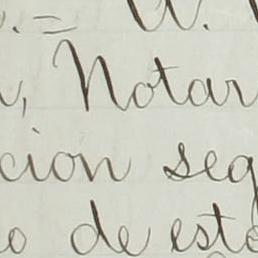 Notar
cion seg
o de esto